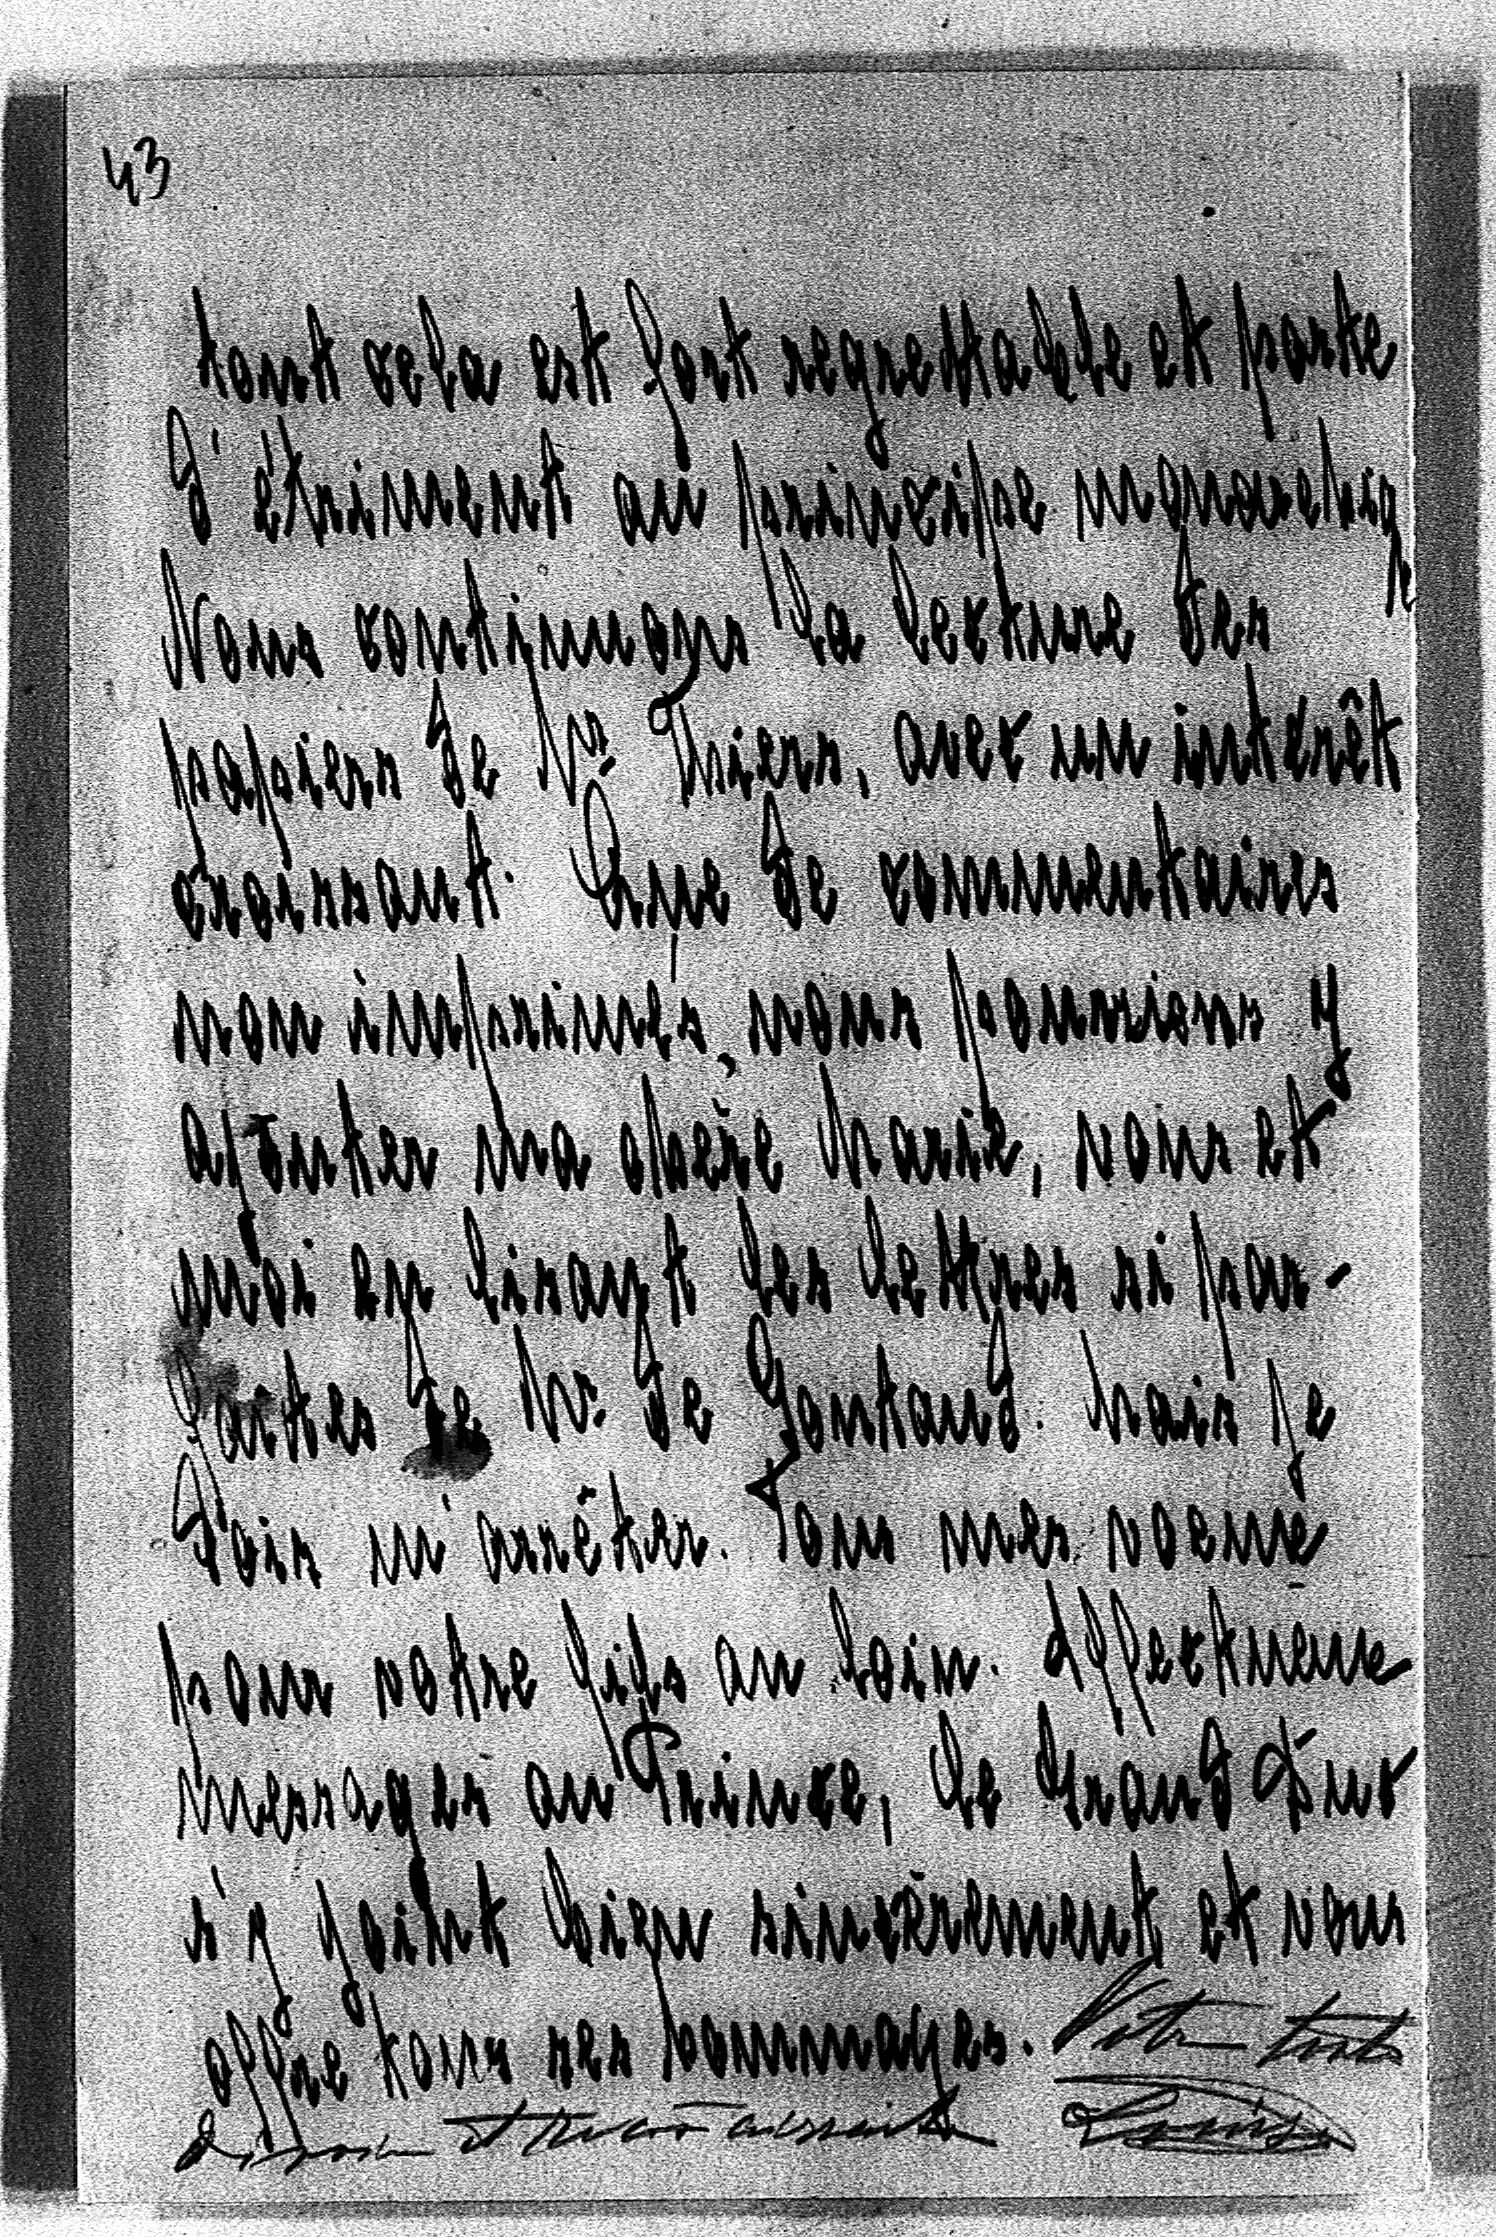 43
tout cela est fort regrettable et porte
d'étriment au principe monarchique
Nous continuons la lecture des
papiers de Mr. Thiers, avec un interêt
croissant. Que de commentaires
non imprimés, nous pourrions y
ajouter ma chère Marie, vous et
moi en lisant les lettres si par-
faites de Mr. de Gontaud. Mais je
dois m'arrêter. Tous mes voeux
pour votre fils au loin. Affectueux
messages au Prince, le Grand Duc
s'y joint bien sincèrement, et vous
offre tous ses hommages. Votre toute
dévouée et reconnaissante Louise